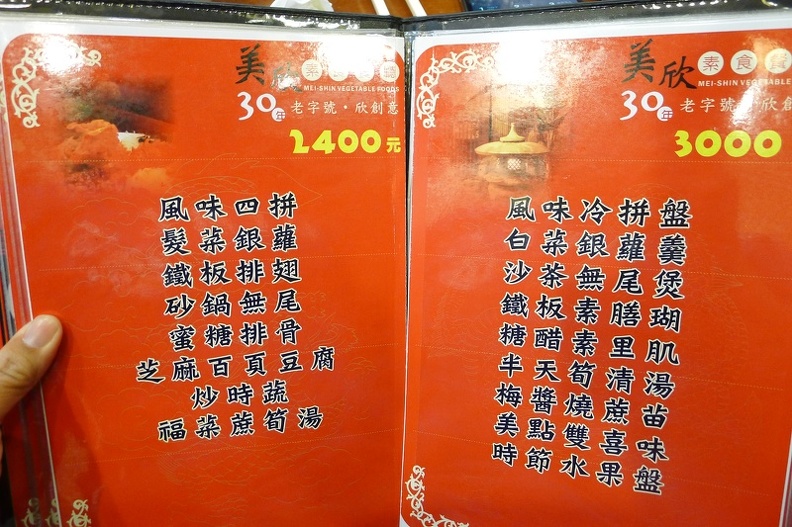 美欣素
MEI-SHIN VEGETABLE FOODS
30年 老字號・欣創意
2400元
風味四拼
髮菜銀蘿
鐵板排翅
砂鍋無尾
蜜糖排骨
芝麻百頁豆腐
炒時蔬
福菜蔗筍湯
美欣素食
MEI-SHIN VEGETABLE
30年 老字號 欣創
3000
風味冷拼盤
白菜銀蘿羹
沙茶無尾煲
鐵板素膳瑚
糖醋素里肌
半天筍清湯
梅醬燒蔗苗
美點雙喜味
時節水果盤